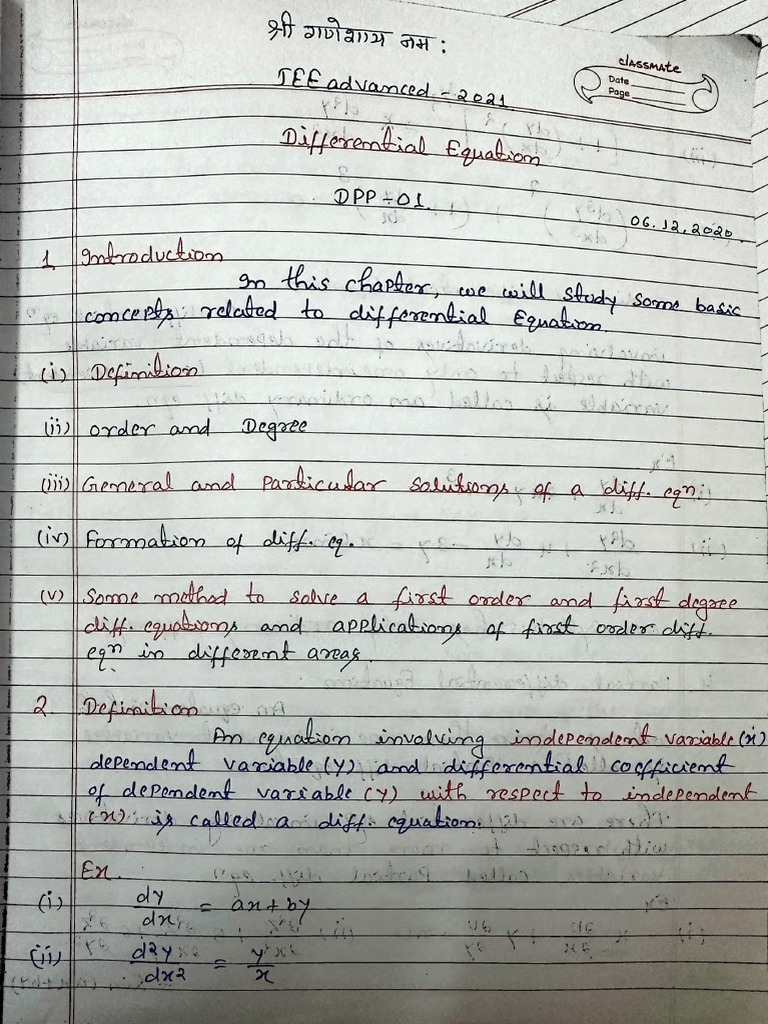 श्री गणेशाय नमः
JEE advanced - 2021
classmate
Date
Page
Differential Equation
DPP - 01.
06.12.2020.
1. Introduction
In this chapter, we will study some basic
concepts related to differential Equation.
(i) Definition
(ii) order and Degree
(iii) General and Particular Solutions of a diff. eqn.
(iv) Formation of diff. eq.
(v) Some method to solve a first order and first degree
diff. equations and applications of first order diff.
eqn in different areas.
2. Definition
An equation involving independent variable (x)
dependent variable (Y) and differential coefficient
of dependent variable (Y) with respect to independent
(x) is called a diff. equation.
Ex.
(i) dy/dx = ax + by
(ii) d2y/dx2 = y/x